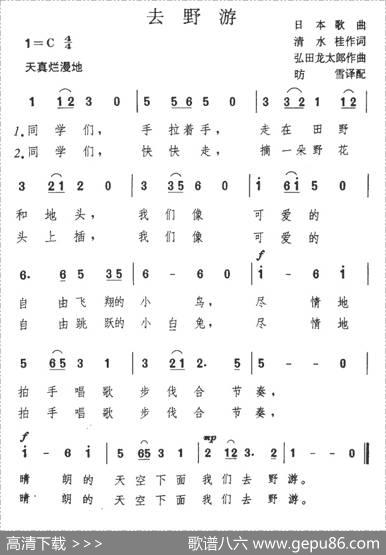 去野游
日本歌曲
1=C 4/4
清水桂作词
天真烂漫地
弘田龙太郎作曲
昉雪译配
1 12 3 0 | 5 56 5 0 | 3 32 3 1 |
1.同学们，手拉着手，走在田野
2.同学们，快快走，摘一朵野花
3 21 2 0 | 3 35 6 0 | i 6i 5 0 |
和地头，我们像可爱的
头上插，我们像可爱的
f
6. 6 5 35 | 6 - 6 0 | i - 6 i |
自由飞翔的小鸟，尽情地
自由跳跃的小白兔，尽情地
5 65 3 1 | 3 21 2. 5 | 5 - - 0 |
拍手唱歌步伐合节奏，
拍手唱歌步伐合节奏，
f mp
i - 6 i | 5 65 3 1 | 2 12 3 2 | 1 - - 0 ‖
晴朗的天空下面我们去野游。
晴朗的天空下面我们去野游。
高清下载 >>> 歌谱八六 www.gepu86.com